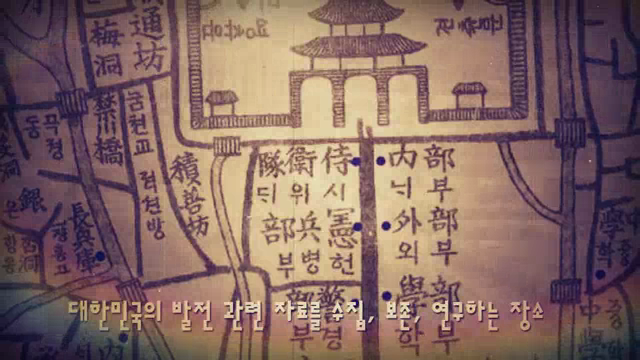 通坊
梅洞
禁川橋
금천교
적선방
積善坊
侍衛隊
시위듸
憲兵部
헌병부
警
경
內部
늬부
外部
외부
學部
학부
長興庫
장흥고
銀
中學
중학
대한민국의 발전 관련 자료를 수집, 보존, 연구하는 장소